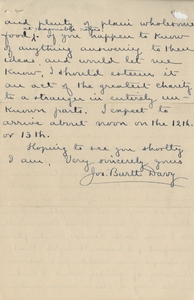 and plenty of plain wholesome
at reasonable rates
food; if you happen to know
of anything answering to these
ideas, and would let me
know, I should esteem it
an act of the greatest charity
to a stranger in entirely un-
known parts. I expect to
arrive about noon on the 12th.
or 13th.
Hoping to see you shortly
I am, Very sincerely yours
Jos. Burtt Davy